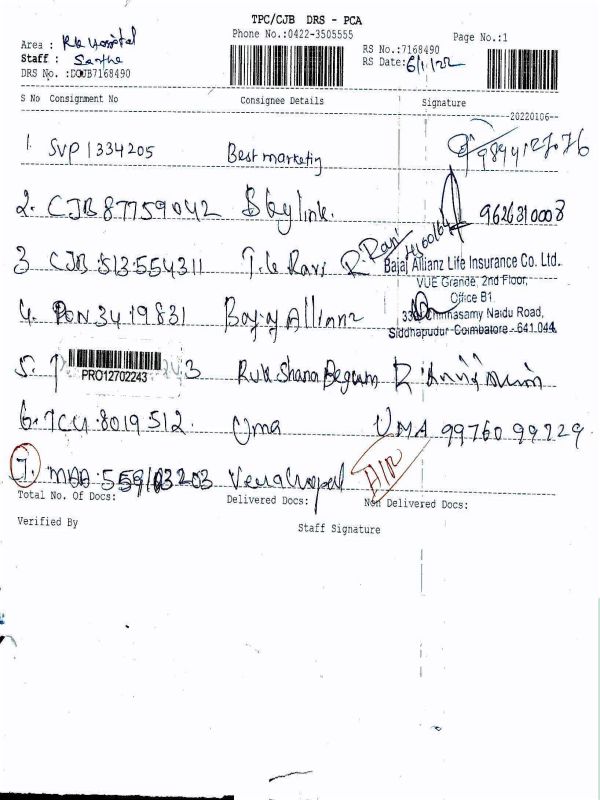 TPC/CJB DRS - PCA
Phone No.:0422-3505555
Page No.:1
Area : RK Hospital
RS No.:7168490
Staff : Santhe
RS Date: 6/1/22
DRS No. :DOUB7168490
S No Consignment No Consignee Details Signature
20220106
1. SVP1334205 Best marketing
2. CJB 87759042 Skylink. 9626310008
3 CJB.513554311 T.k Ravi R. Ravi
Bajaj Allianz Life Insurance Co. Ltd.
VUE Grande, 2nd Floor,
Office B1
4. PON 3419831 Bajaj Allianz
Chinnasamy Naidu Road,
Siddhapudur Coimbatore - 641 044
5. PRO12702243 3 Ruk Shana Begum
6. TCY.8019512. Uma UMA 99760 99229.
7. MAA:559103203
Total No. Of Docs: Delivered Docs: Non Delivered Docs:
Verified By Staff Signature